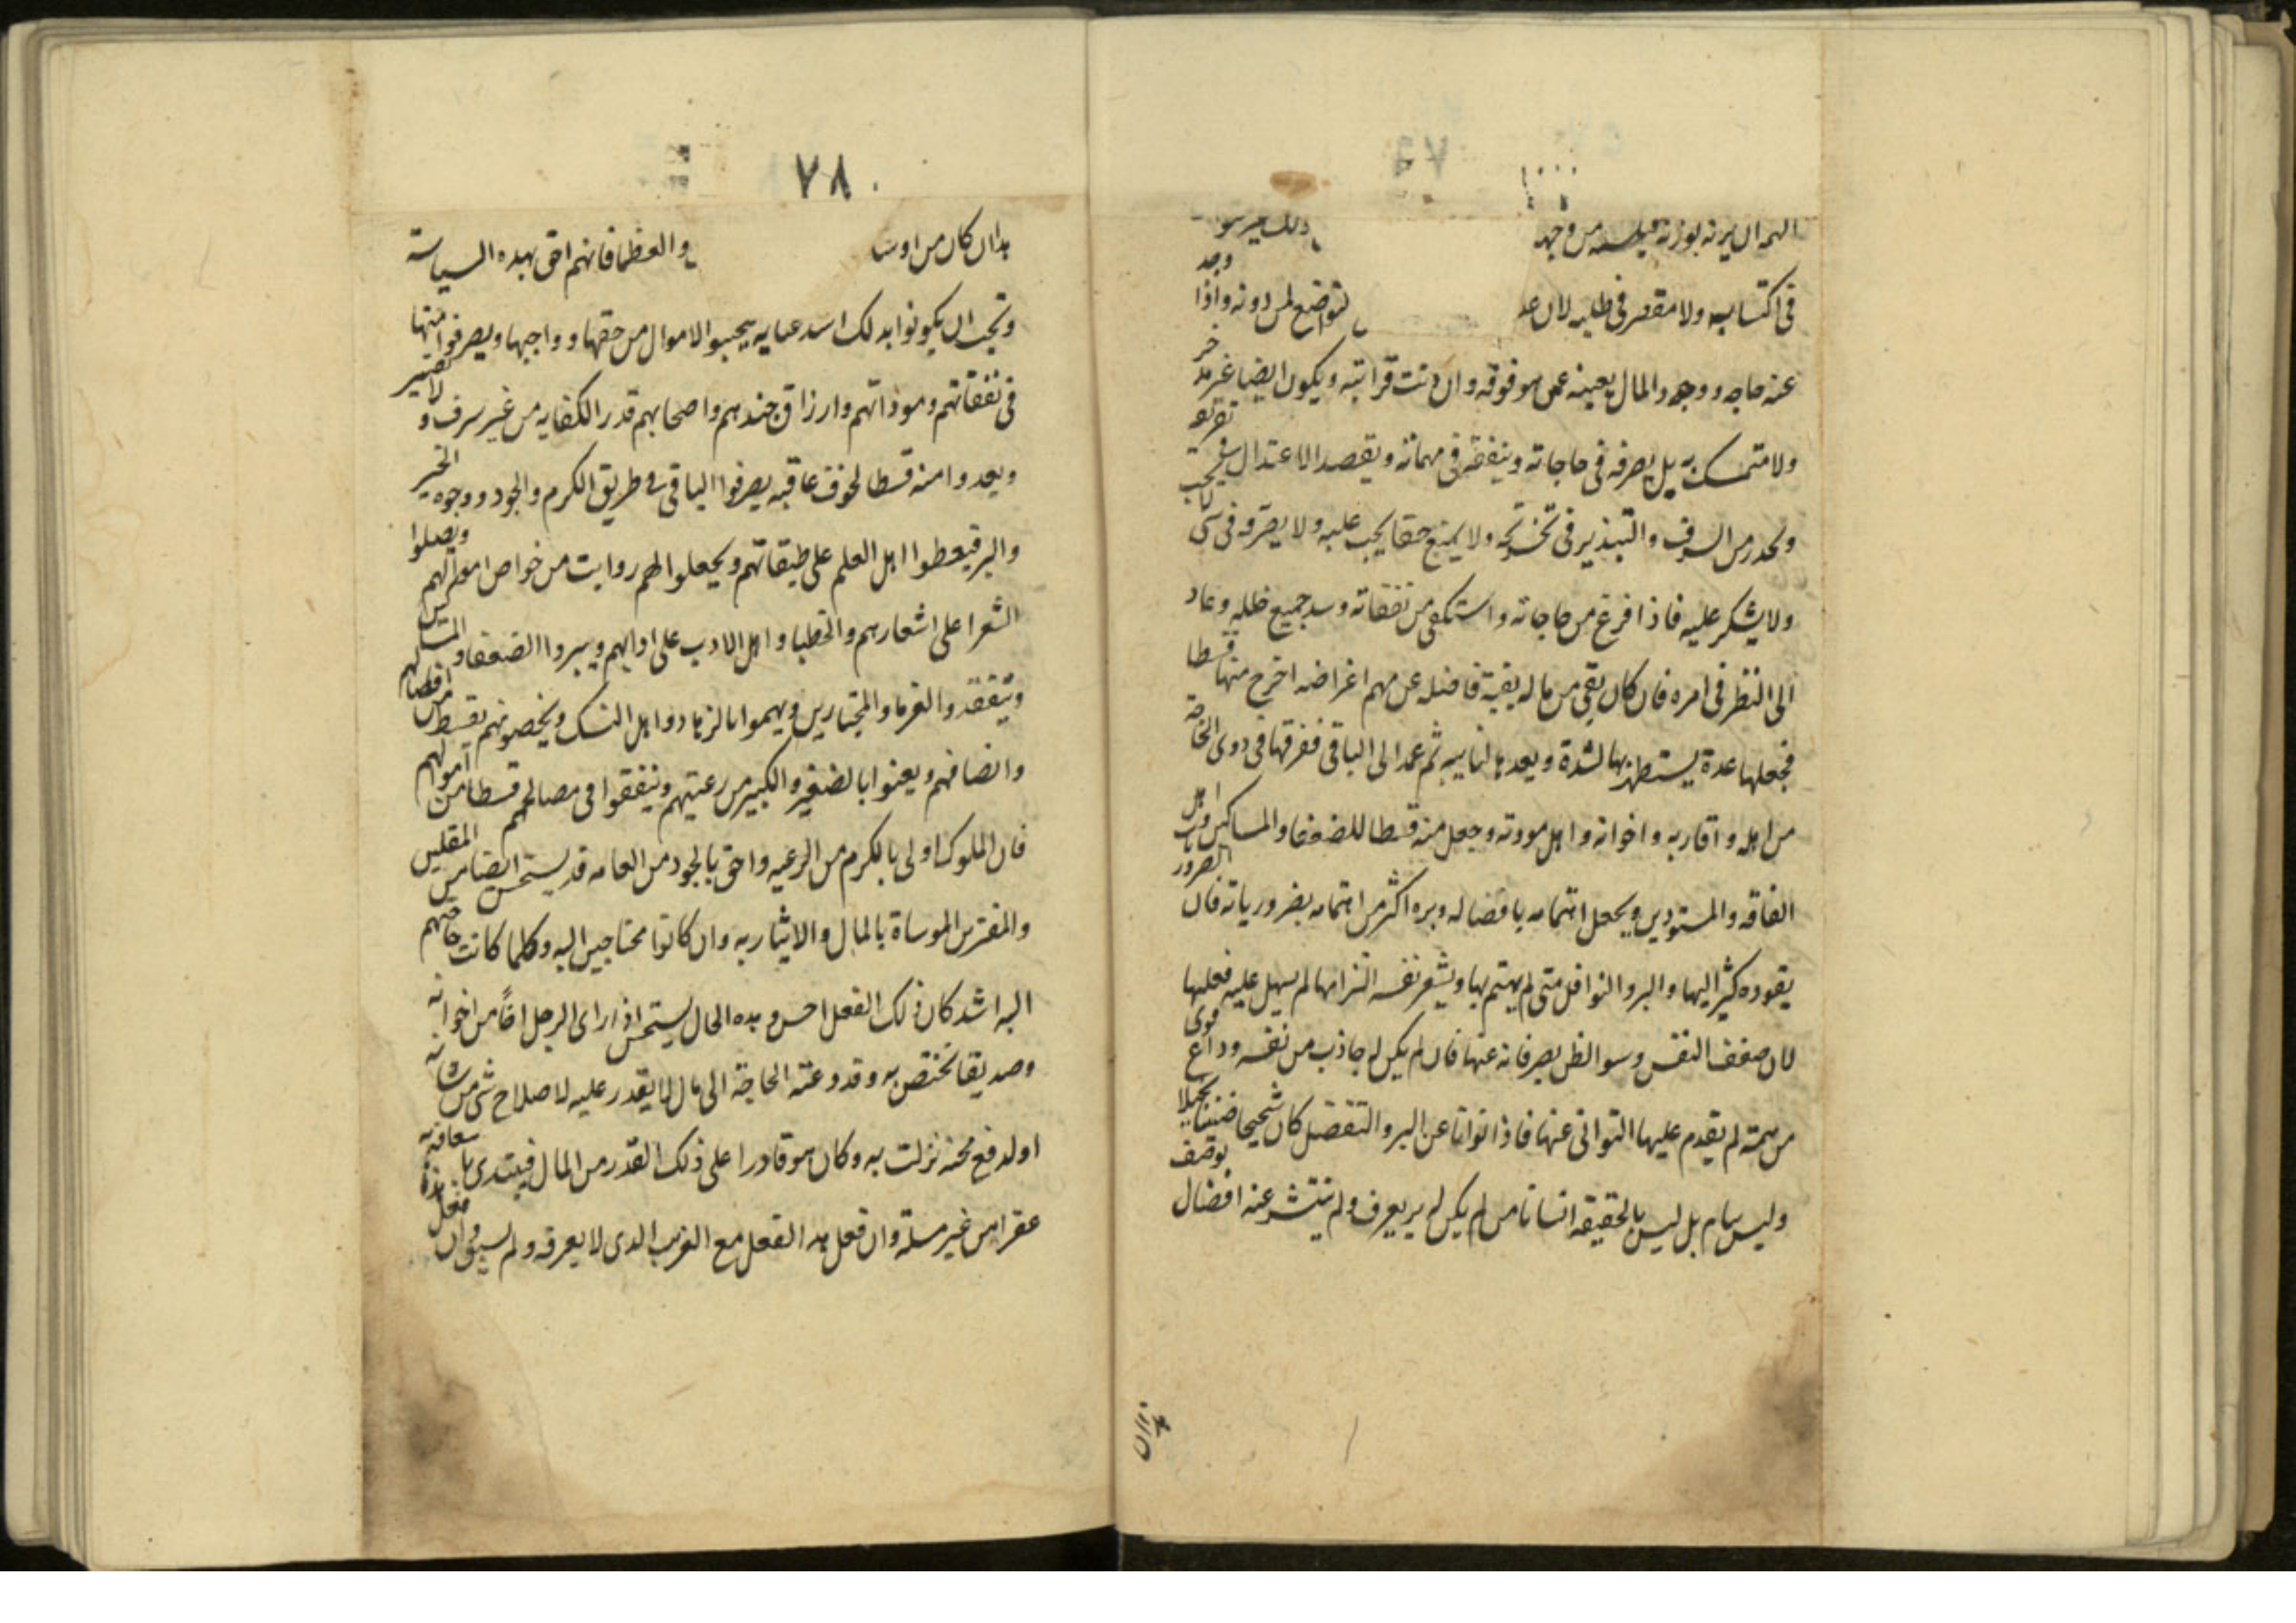 في اكتسابه ولا مقصر في طلبه لان عد لتواضع لمن دونه واذا
عنه حاجه ووجود المال يعينه عمن هو فوقه وان دنت قرابته ويكون ايضا غير مدخر
ولا متمسك به بل يصرفه في حاجاته وينفقه في مهماته ويقصد الاعتدال في تفرقته
ويحذر من السرف والتبذير في تخرجه ولا يمنع حقا يجب عليه ولا يصرفه في شى لا يجب
ولا يشكر عليه فاذا فرغ من حاجاته واستكفى من نفقاته وسد جميع خلله وعاد
الى النظر في امره فان كان بقى من ماله بقية فاضله عن مهم اغراضه اخرج منها قسطا
فجعلها عدة يستظهر بها لشدة ويعدها لنايبه ثم عمد الى الباقى ففرقها في ذوى الحاجة
من اهله واقاربه واخوانه واهل مودته وجعل منه قسطا للضعفا والمساكين واهل
الفاقه والمستورين ويجعل اهتمامه بافضاله وبره اكثر من اهتمامه بضرورياته فان الضرور
يقوده كثير اليها والبر والنوافل متى لم يهتم بها ويشعر نفسه التزامها لم يسهل عليه فعلها
لان ضعف النفس وسو الظن يصرفانه عنها فان لم يكن له جاذب من نفسه وداع قوى
من همته لم يقدم عليها التوانى عنها فاذا توانا عن البر والتفضل كان شحيحا ضنينا بخيلا
وليس سام بل ليس بالحقيقه انسانا من لم يكن له بر يعرف ولم تنتشر عنه افضال يوصف
هذا ان
٧٨
هذا ان كان من اوسا والعظما فانهم احق بهده السياسة
ويجب ان يكونوا بدلك اسد عنايه يجبوا الاموال من حقها وواجبها ويصرفوا منها
في نفقاتهم ومؤناتهم وارزاق جندهم واصحابهم قدر الكفايه من غير سرف ولا تقتير
ويعدوا منه قسطا لخوف عاقبه يصرفوا الباقى في طريق الكرم والجود ووجوه الخير
والبر فيعطوا اهل العلم على طبقاتهم ويجعلوا لهم رواتب من خواص اموالهم ويصلوا
الشعرا على اشعارهم والخطبا واهل الادب على ادابهم ويبروا الضعفا والمساكين
ويتفقدوا الغربا والمجتازين ويهموا بالزهاد واهل النسك ويخصونهم بقسط من افضالهم
وانضافهم ويعنوا بالصغير والكبير من رعيتهم وينفقوا في مصالحهم قسطا من اموالهم
فان الملوك اولى بالكرم من الرعيه واحق بالجود من العامه قد يستحسن ايضا من المقلين
والمقترين المواساة بالمال والايثار به وان كانوا محتاجين اليه وكلما كانت حاجتهم
اليه اشد كان ذلك الفعل احسن وهده الحال يستحسن اذا راى الرجل اخًا من اخوانه
وصديقا تختص به وقد دعته الحاجة الى مال لا يقدر عليه لاصلاح شى من شانه
او لدفع محنه نزلت به وكان هو قادرا على ذلك القدر من المال فيبتدى باسعافه به
عفوا من غير مسلة وان فعل هدا الفعل مع الغريب الدى لا يعرفه ولم يسبق